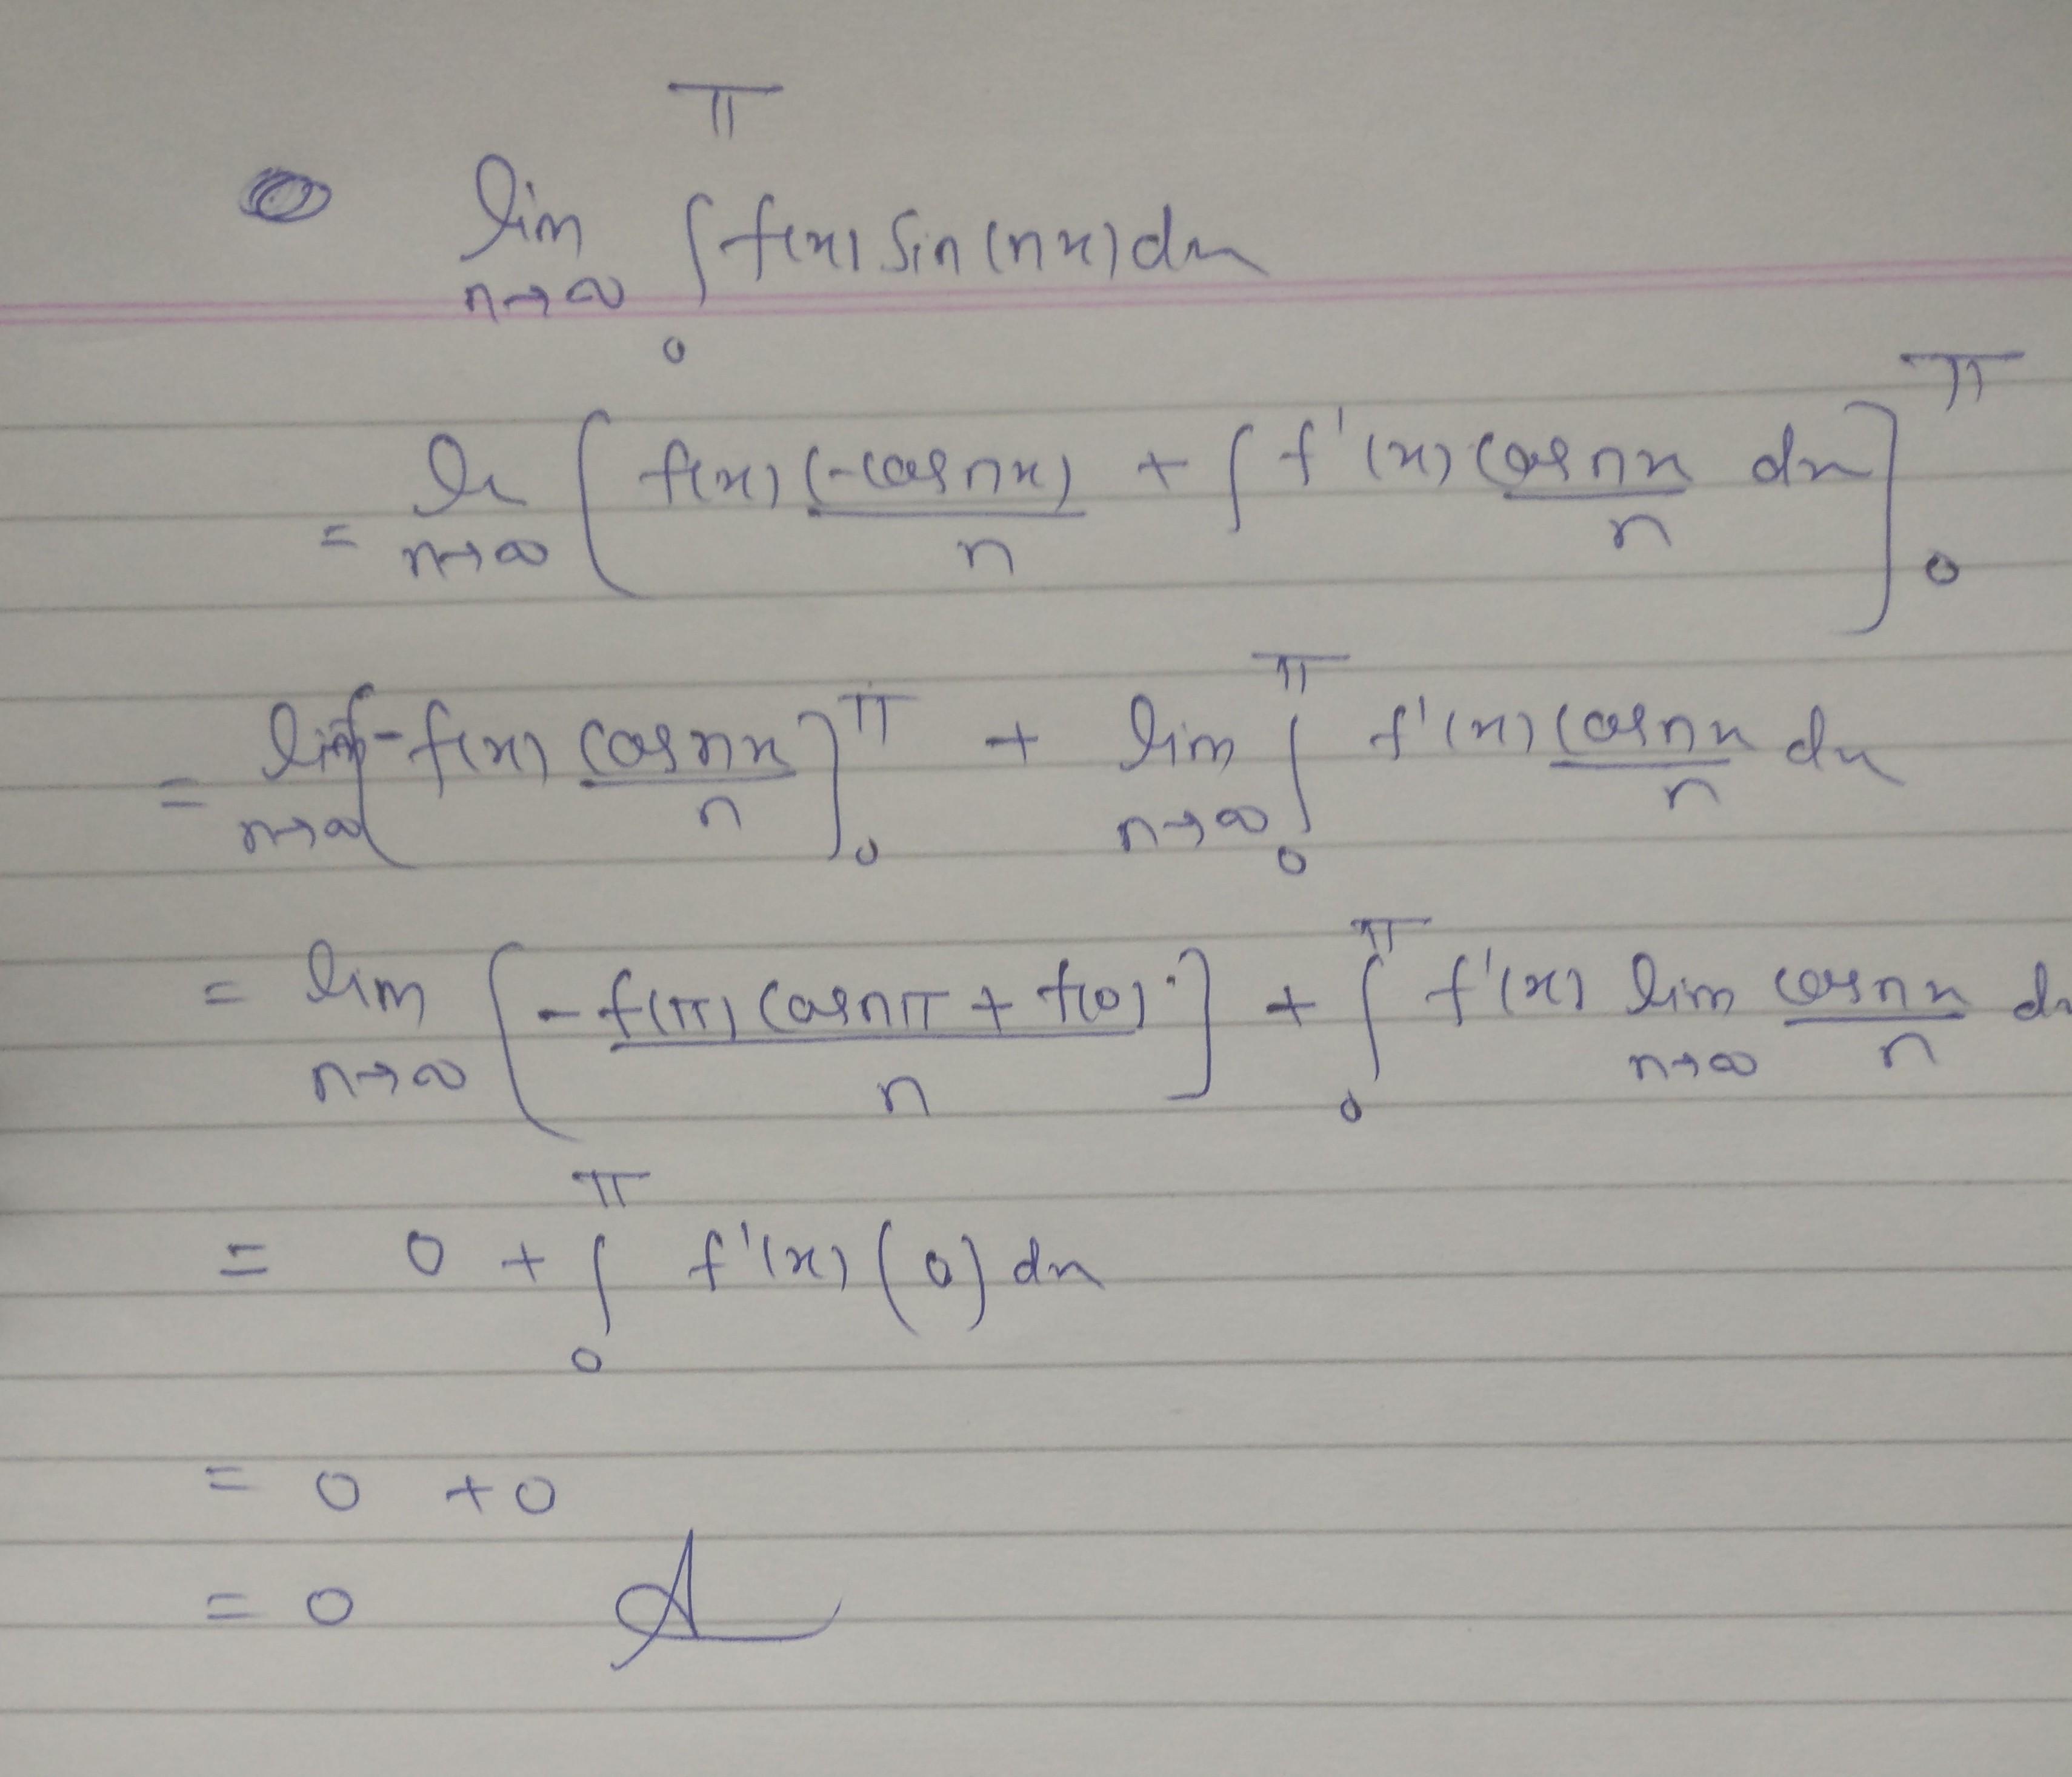 lim n→∞ ∫₀^π f(x) Sin(nx) dx
= li n→∞ [ f(x) (-cos nx)/n + ∫ f'(x) cos nx/n dx ]₀^π
= lim n→∞ [ -f(x) cos nx/n ]₀^π + lim n→∞ ∫₀^π f'(x) cos nx/n dx
= lim n→∞ [ (-f(π) cos nπ + f(0))/n ] + ∫₀^π f'(x) lim n→∞ cos nx/n dx
= 0 + ∫₀^π f'(x) (0) dx
= 0 + 0
= 0 A